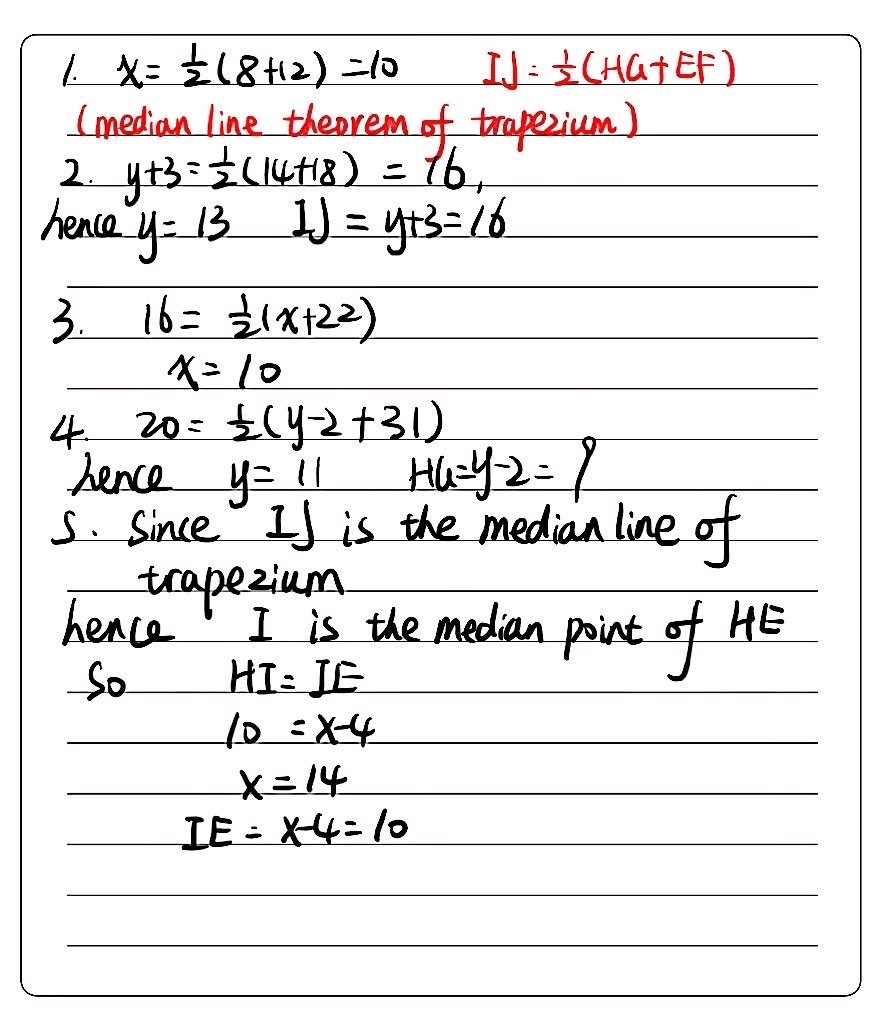 1. x = 1/2(8+12) = 10 IJ = 1/2(HG+EF)
(median line theorem of trapezium)
2. y+3 = 1/2(14+18) = 16,
hence y = 13 IJ = y+3 = 16
3. 16 = 1/2(x+22)
x = 10
4. 20 = 1/2(y-2+31)
hence y = 11 HG = y-2 = 9
5. Since IJ is the median line of
trapezium
hence I is the median point of HE
So HI = IE
10 = x-4
x = 14
IE = x-4 = 10